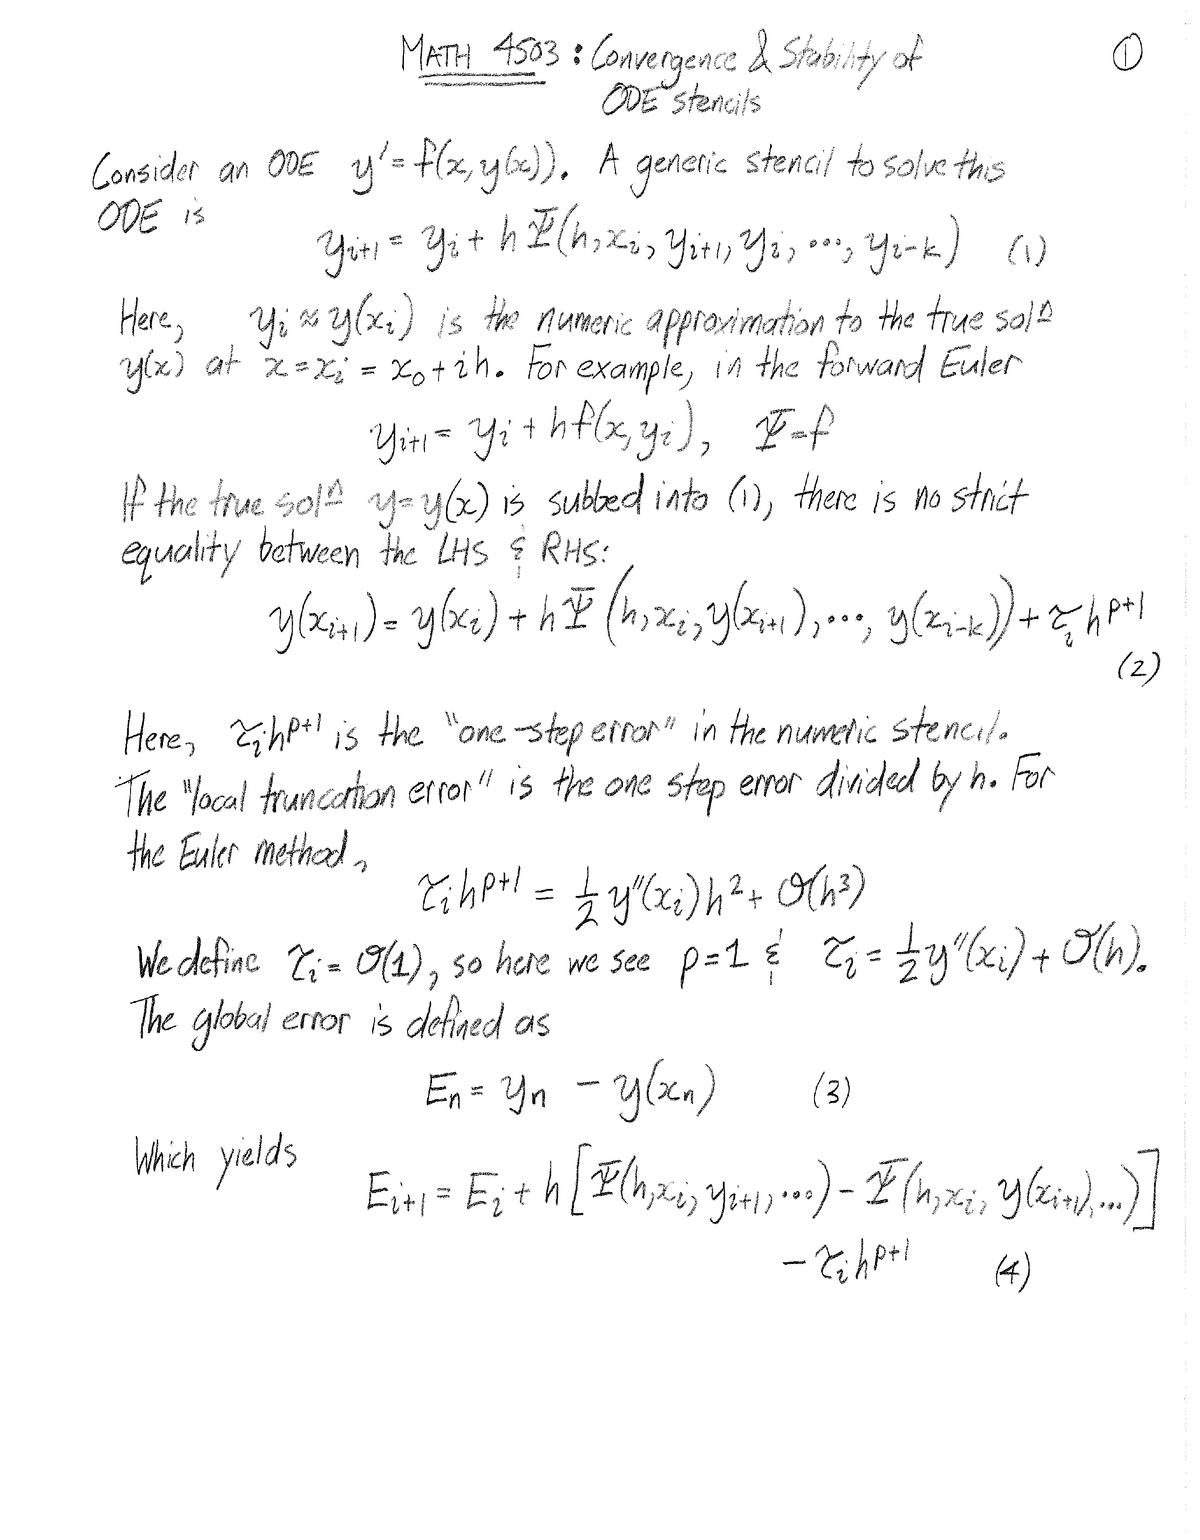 MATH 4503 : Convergence & Stability of ①
ODE stencils
Consider an ODE y' = f(x, y(x)). A generic stencil to solve this
ODE is
y_{i+1} = y_i + h Ψ(h, x_i, y_{i+1}, y_i, ..., y_{i-k}) (1)
Here, y_i ≈ y(x_i) is the numeric approximation to the true solⁿ
y(x) at x = x_i = x_0 + ih. For example, in the forward Euler
y_{i+1} = y_i + hf(x, y_i), Ψ = f
If the true solⁿ y = y(x) is subbed into (1), there is no strict
equality between the LHS & RHS:
y(x_{i+1}) = y(x_i) + h Ψ(h, x_i, y(x_{i+1}), ..., y(x_{i-k})) + τ_i h^{p+1}
(2)
Here, τ_i h^{p+1} is the "one-step error" in the numeric stencil.
The "local truncation error" is the one step error divided by h. For
the Euler method,
τ_i h^{p+1} = 1/2 y''(x_i) h² + O(h³)
We define τ_i = O(1), so here we see p = 1 & τ_i = 1/2 y''(x_i) + O(h).
The global error is defined as
E_n = y_n - y(x_n) (3)
Which yields
E_{i+1} = E_i + h [Ψ(h, x_i, y_{i+1}, ...) - Ψ(h, x_i, y(x_{i+1}), ...)]
- τ_i h^{p+1} (4)